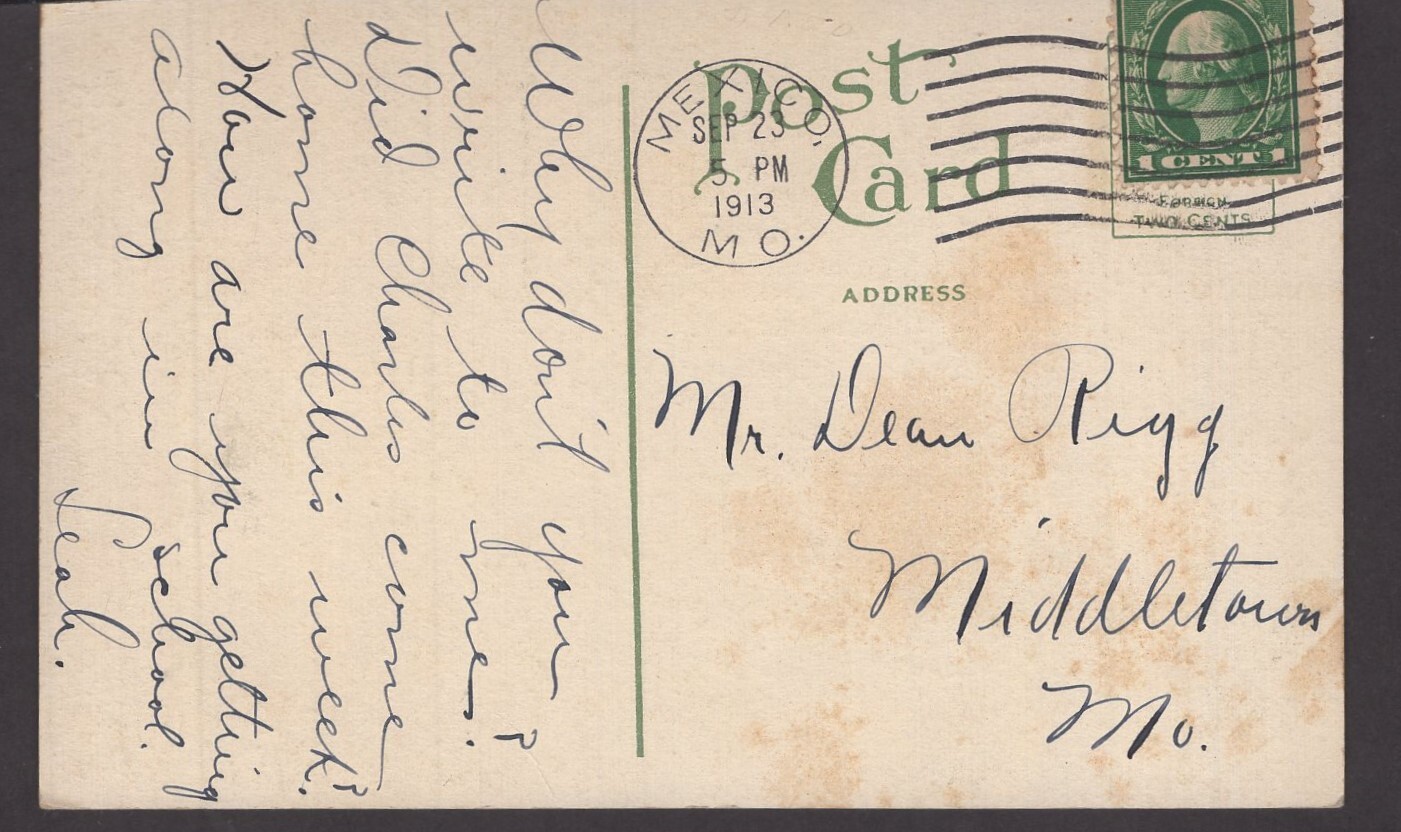 Why don't you
write to me.?
Did Charles come
home this week?
How are you getting
along in school.
Leah.
Post
Card
MEXICO,
SEP 23
5 PM
1913
MO.
1 CENT 1
FOREIGN
TWO CENTS
ADDRESS
Mr. Dean Rigg
Middletown
Mo.